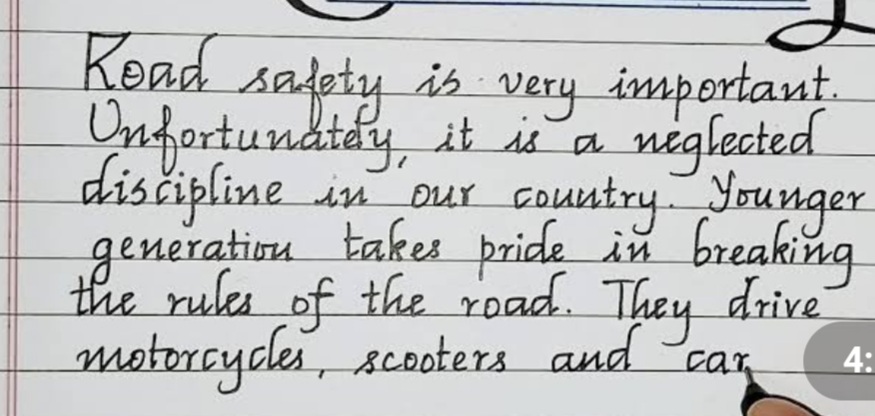 Road safety is very important.
Unfortunately, it is a neglected
discipline in our country. Younger
generation takes pride in breaking
the rules of the road. They drive
motorcycles, scooters and car
4: